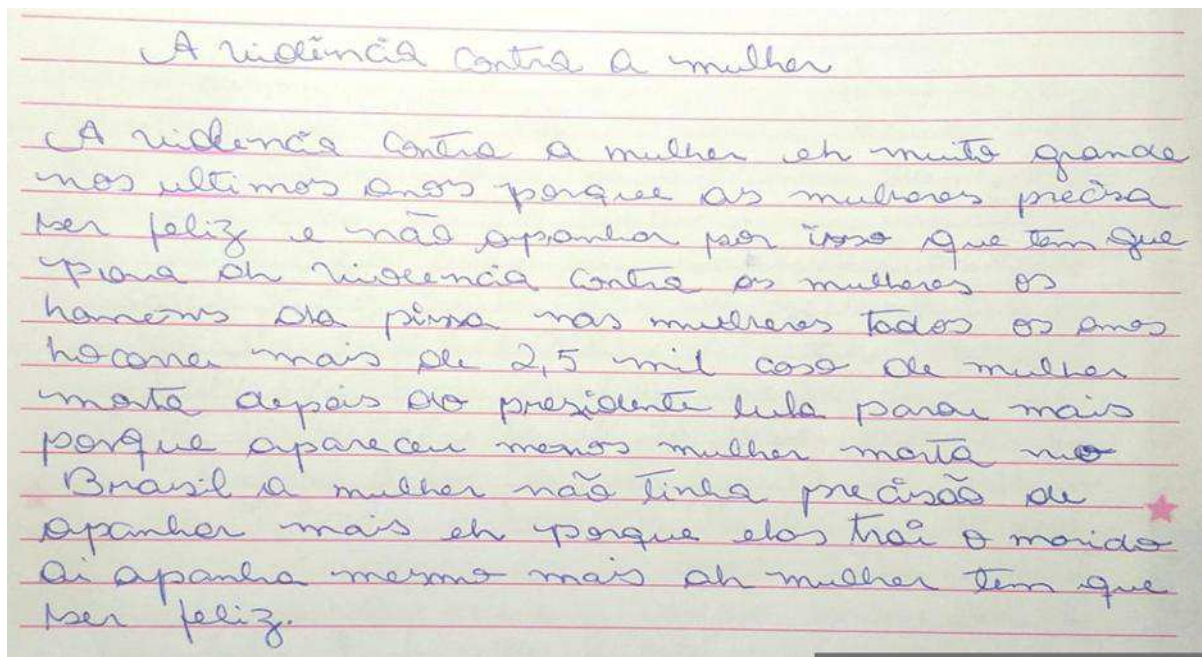 A violência contra a mulher
A violencia contra a mulher eh muito grande
nos ultimos anos porque as mulheres precisa
ser feliz e não apanhar por isso que tem que
para ah violencia contra as mulheres os
homens da pissa nas mulheres todos os anos
hocorre mais de 2,5 mil caso de mulher
morta depois do presidente lula parou mais
porque apareceu menos mulher morta no
Brasil a mulher não tinha precisão de
apanhar mais eh porque elas trai o marido
ai apanha mesmo mais ah mulher tem que
ser feliz.